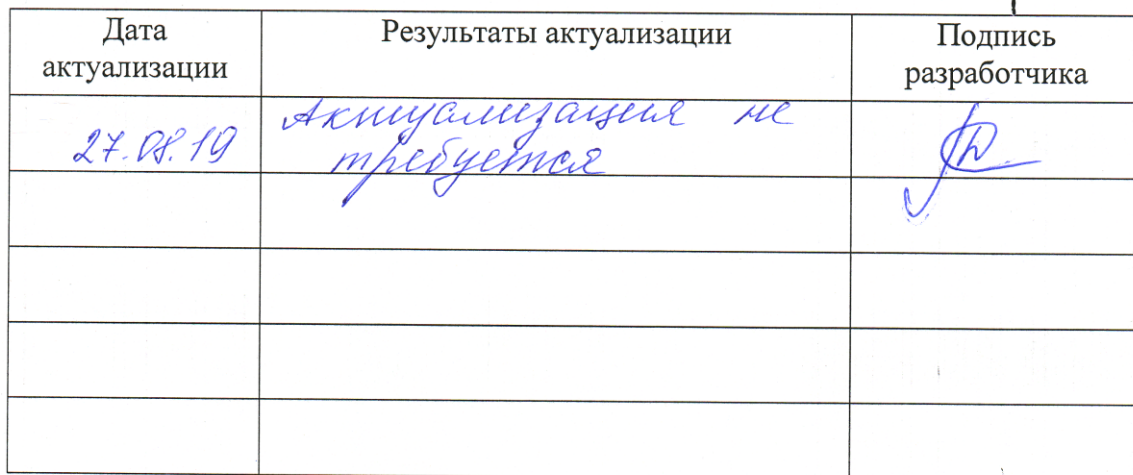 Дата актуализации
Результаты актуализации
Подпись разработчика
27.08.19
Актуализация не
требуется